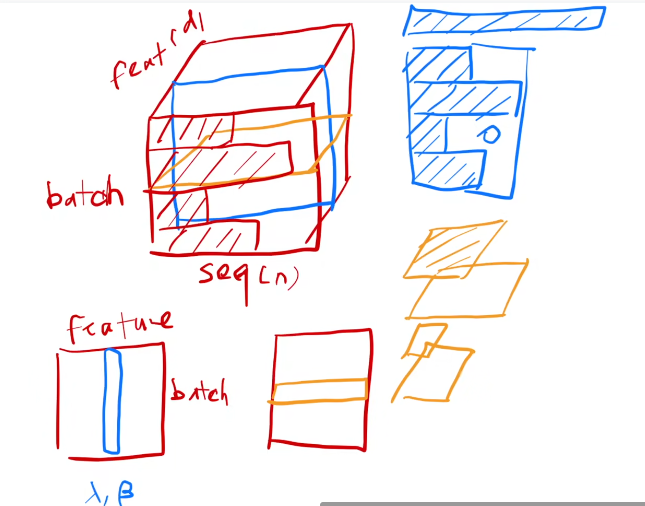 feat(d)
batch
seq(n)
feature
batch
λ, β